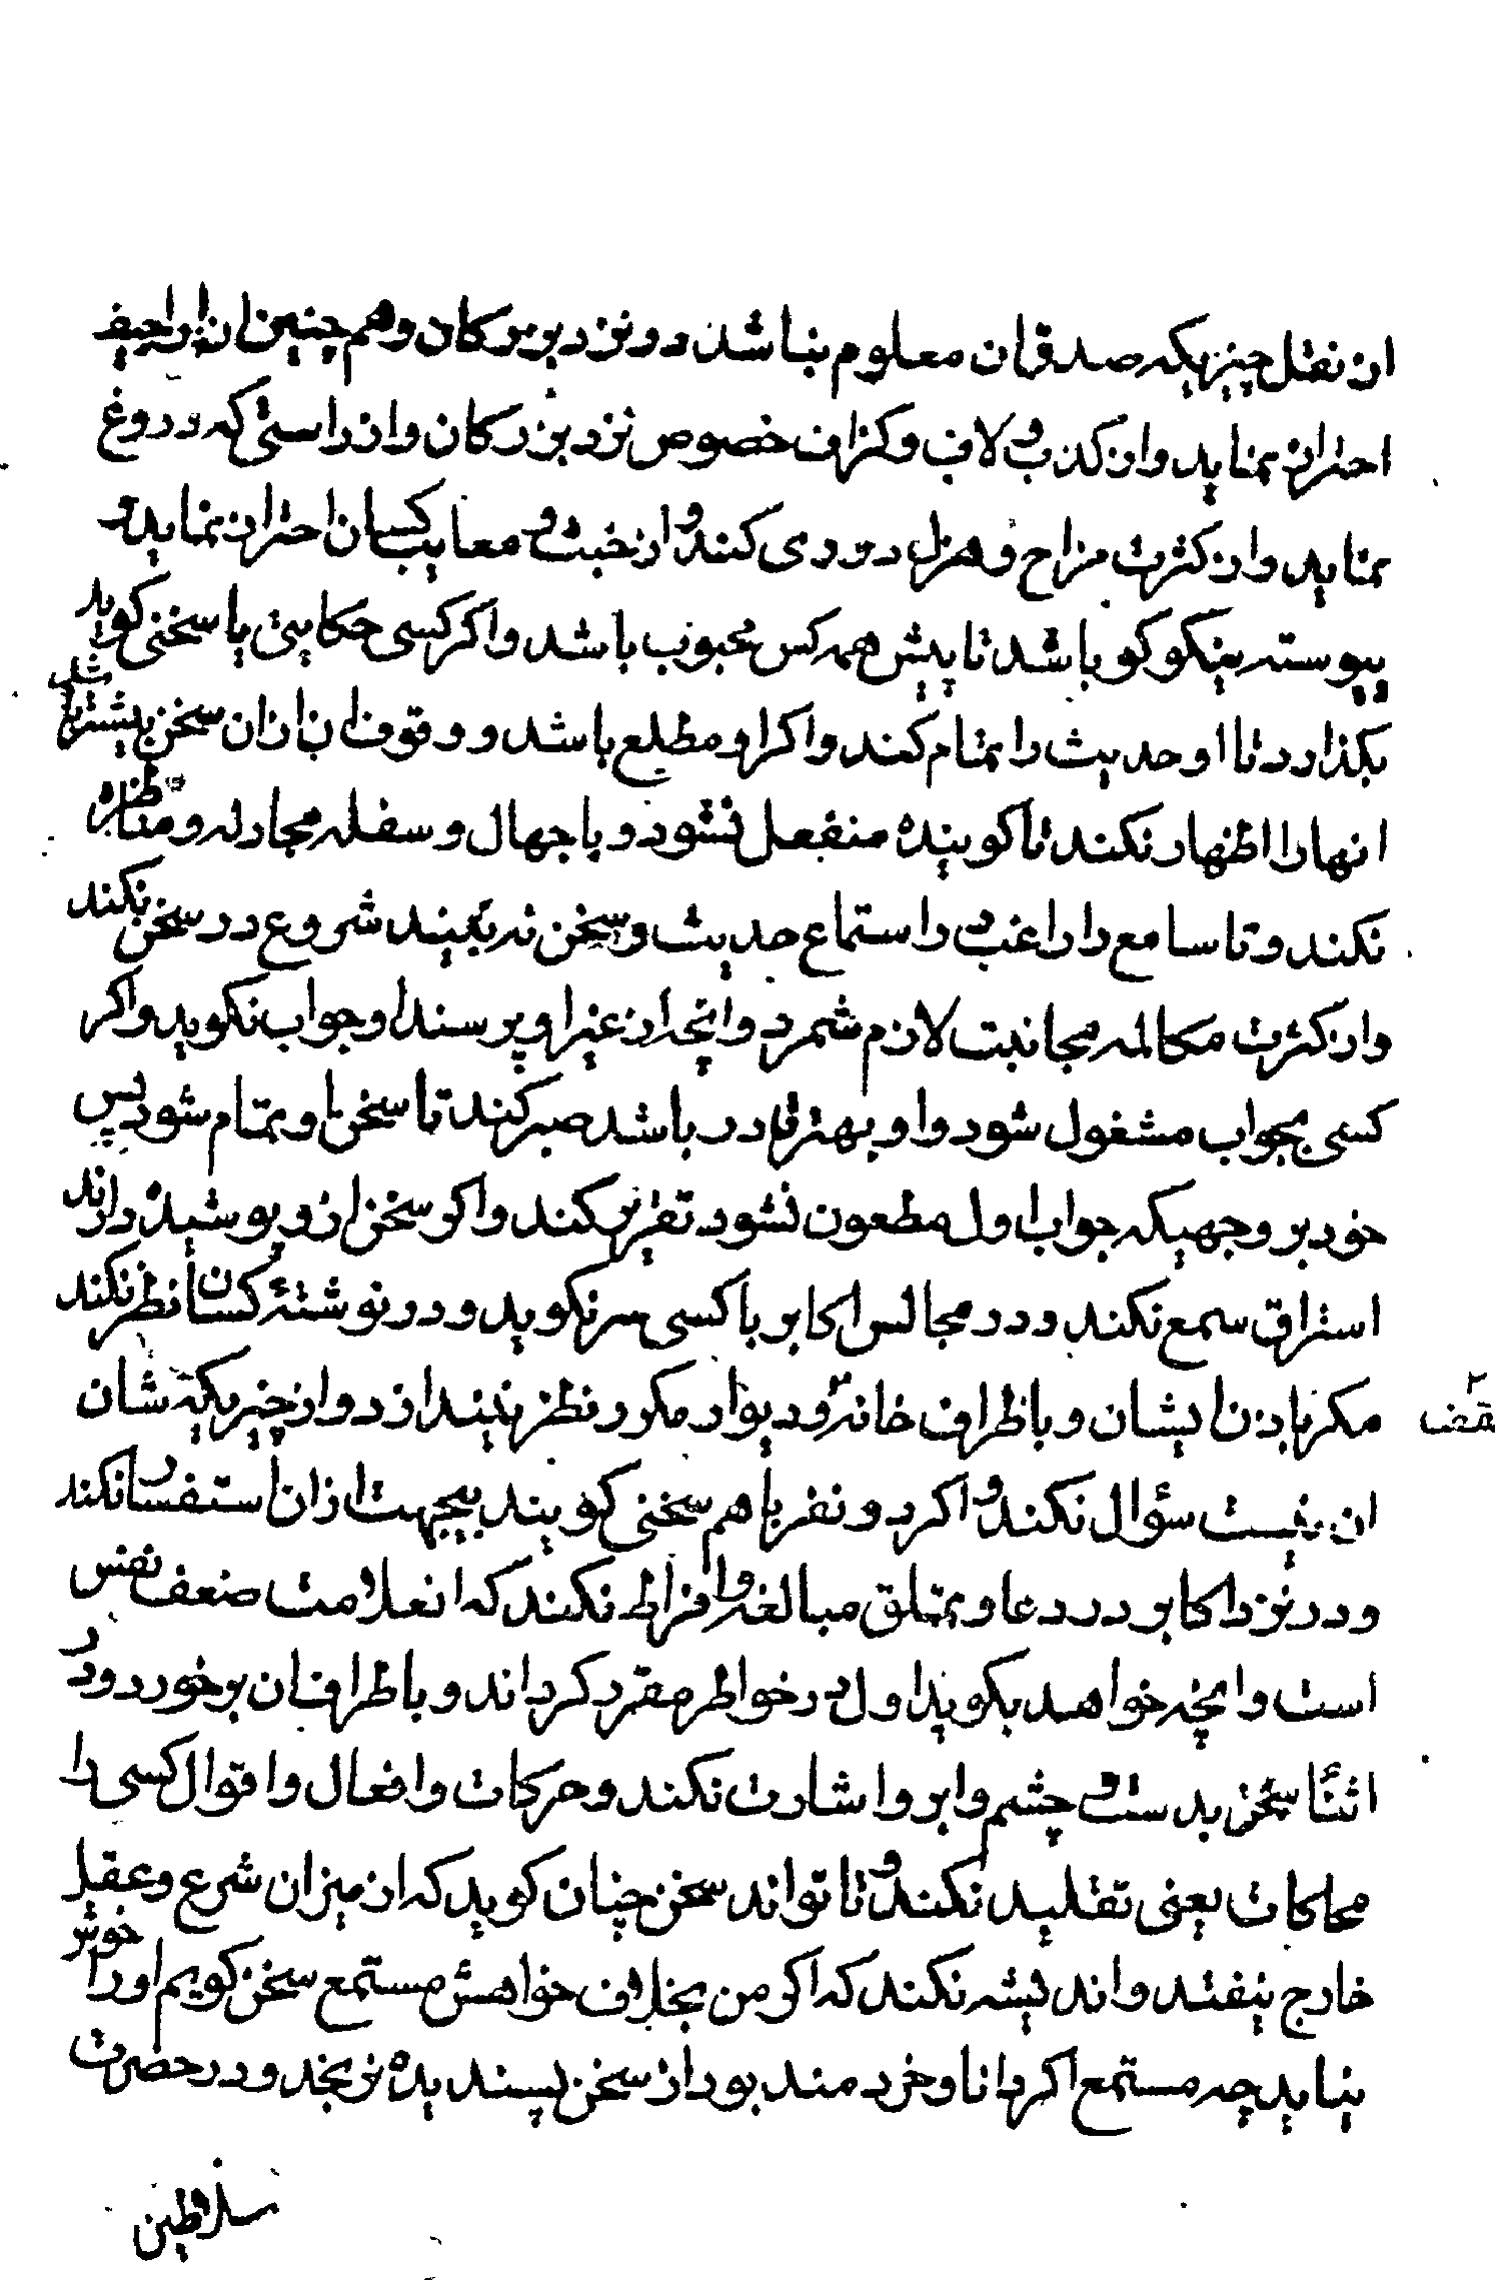 از نقل چیزیکه صدق آن معلوم نباشد در نزد بزرکان و هم چنین از اراجیف
احتراز نماید و از کذب و لاف و کزاف خصوص نزد بزرکان و از راستی که دروغ
نماید و از کثرت مزاح و هزل دوری کند و از خبث و معایب کسان احتراز نماید و
پیوسته نیکو کو باشد تا پیش همه کس محبوب باشد و اکر کسی حکایتی یا سخنی کوید
بکذارد تا او حدیث را تمام کند و اکر او مطلع باشد و وقوف او بازان سخن بیشتر باشد
انها را اظهار نکند تا کوینده منفعل نشود و با جهال و سفله مجادله و مناظره
نکند و تا سامع را راغب در استماع حدیث و سخن نه بیند شروع در سخن نکند
و از کثرت مکالمه مجانبت لازم شمرد و انچه از غیر او پرسند او جواب نکوید و اکر
کسی بجواب مشغول شود و او بهتر قادر باشد صبر کند تا سخن او تمام شود پس
خود بر وجهیکه جواب اول مطعون نشود تقریر کند و اکر سخن از و پوشیده دارند
استراق سمع نکند و در مجالس اکابر با کسی سر نکوید و در نوشتهٔ کسان نظر نکند
مکر باذن ایشان و باطراف خانه و دیوار مکرر نظر نیندازد و از چیزیکه شان
ان نیست سؤال نکند و اکر دو نفر با هم سخنی کویند بیجهت ازان استفسار نکند
و در نزد اکابر در دعا و تملق مبالغه و افراط نکند که ان علامت ضعف نفس
است و انچه خواهد بکوید اول در خواطر مقرر کرداند و باطراف آن برخورد و در
اثنأ سخن بدست و چشم و ابرو اشارت نکند و حرکات و افعال و اقوال کسی را
محاکات یعنی تقلید نکند و تا تواند سخن چنان کوید که از میزان شرع و عقل
خارج نیفتد و اندیشه نکند که اکر من بخلاف خواهش مستمع سخن کویم او را خوش
نیاید چه مستمع اکر دانا و خردمند بود از سخن پسندیده نرنجد و در حضرت
سلاطین